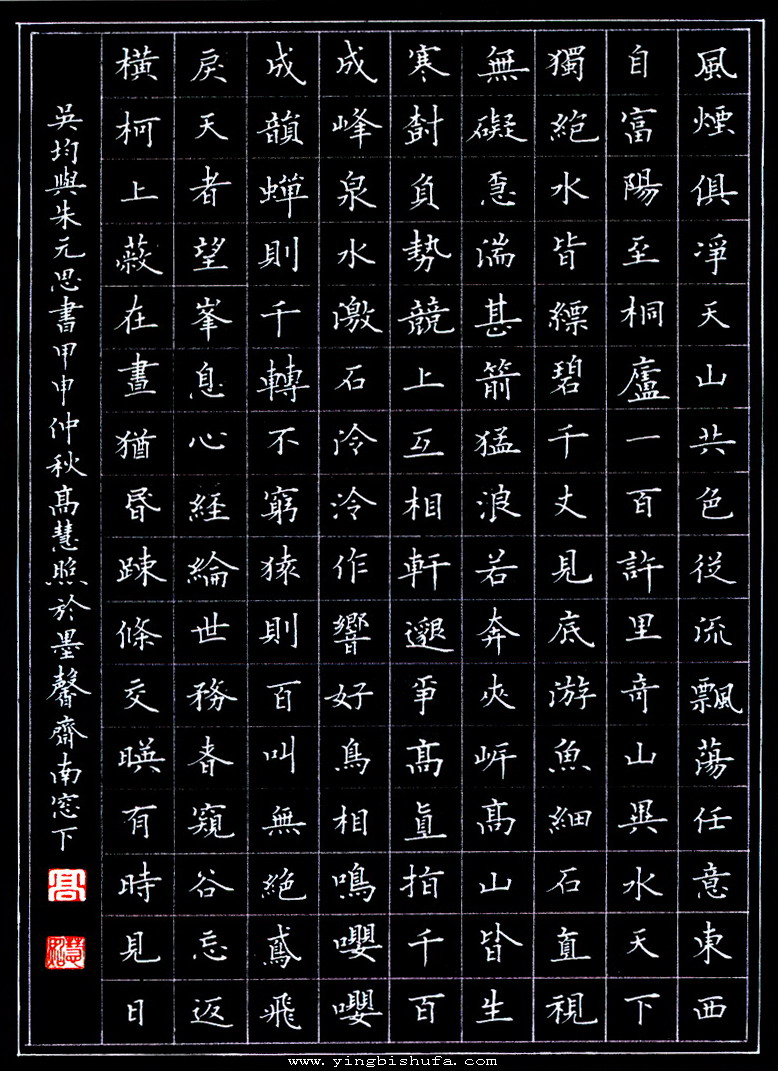 風煙俱淨天山共色從流飄蕩任意東西
自富陽至桐廬一百許里奇山異水天下
獨絕水皆縹碧千丈見底游魚細石直視
無礙急湍甚箭猛浪若奔夾岸高山皆生
寒樹負勢競上互相軒邈爭高直指千百
成峰泉水激石泠泠作響好鳥相鳴嚶嚶
成韻蟬則千轉不窮猿則百叫無絕鳶飛
戾天者望峯息心經綸世務者窺谷忘返
橫柯上蔽在晝猶昏疎條交映有時見日
吳均與朱元思書甲申仲秋高慧照於墨馨齋南窓下
高
慧照
www.yingbishufa.com